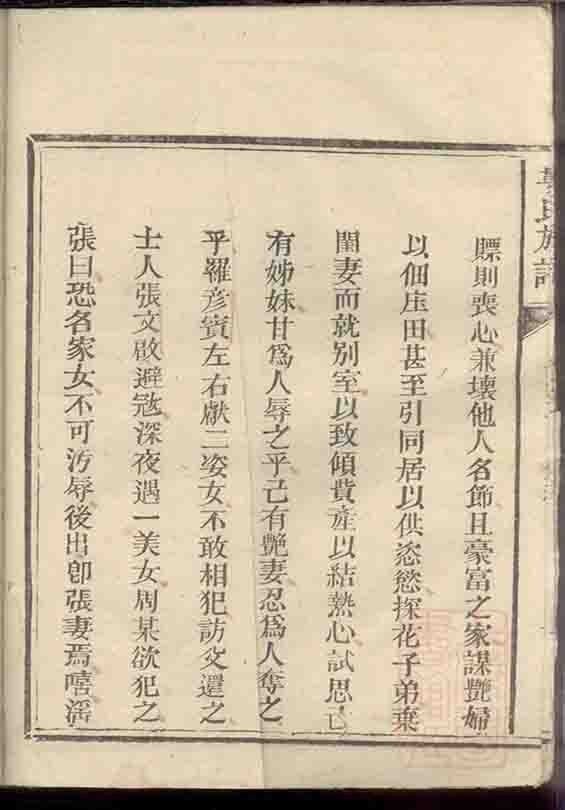 氏族譜
賿則喪心兼壞他人名節且豪富之家謀艷婦
以佃庄田甚至引同居以供恣慾探花子弟棄
閨妻而就別室以致傾貲產以結熱心試思己
有姊妹甘爲人辱之乎己有艷妻忍爲人奪之
乎羅彥賓左右獻二姿女不敢相犯訪父還之
士人張文啟避冦深夜遇一美女周某欲犯之
張曰恐名家女不可汚辱後出卽張妻焉嘻淫